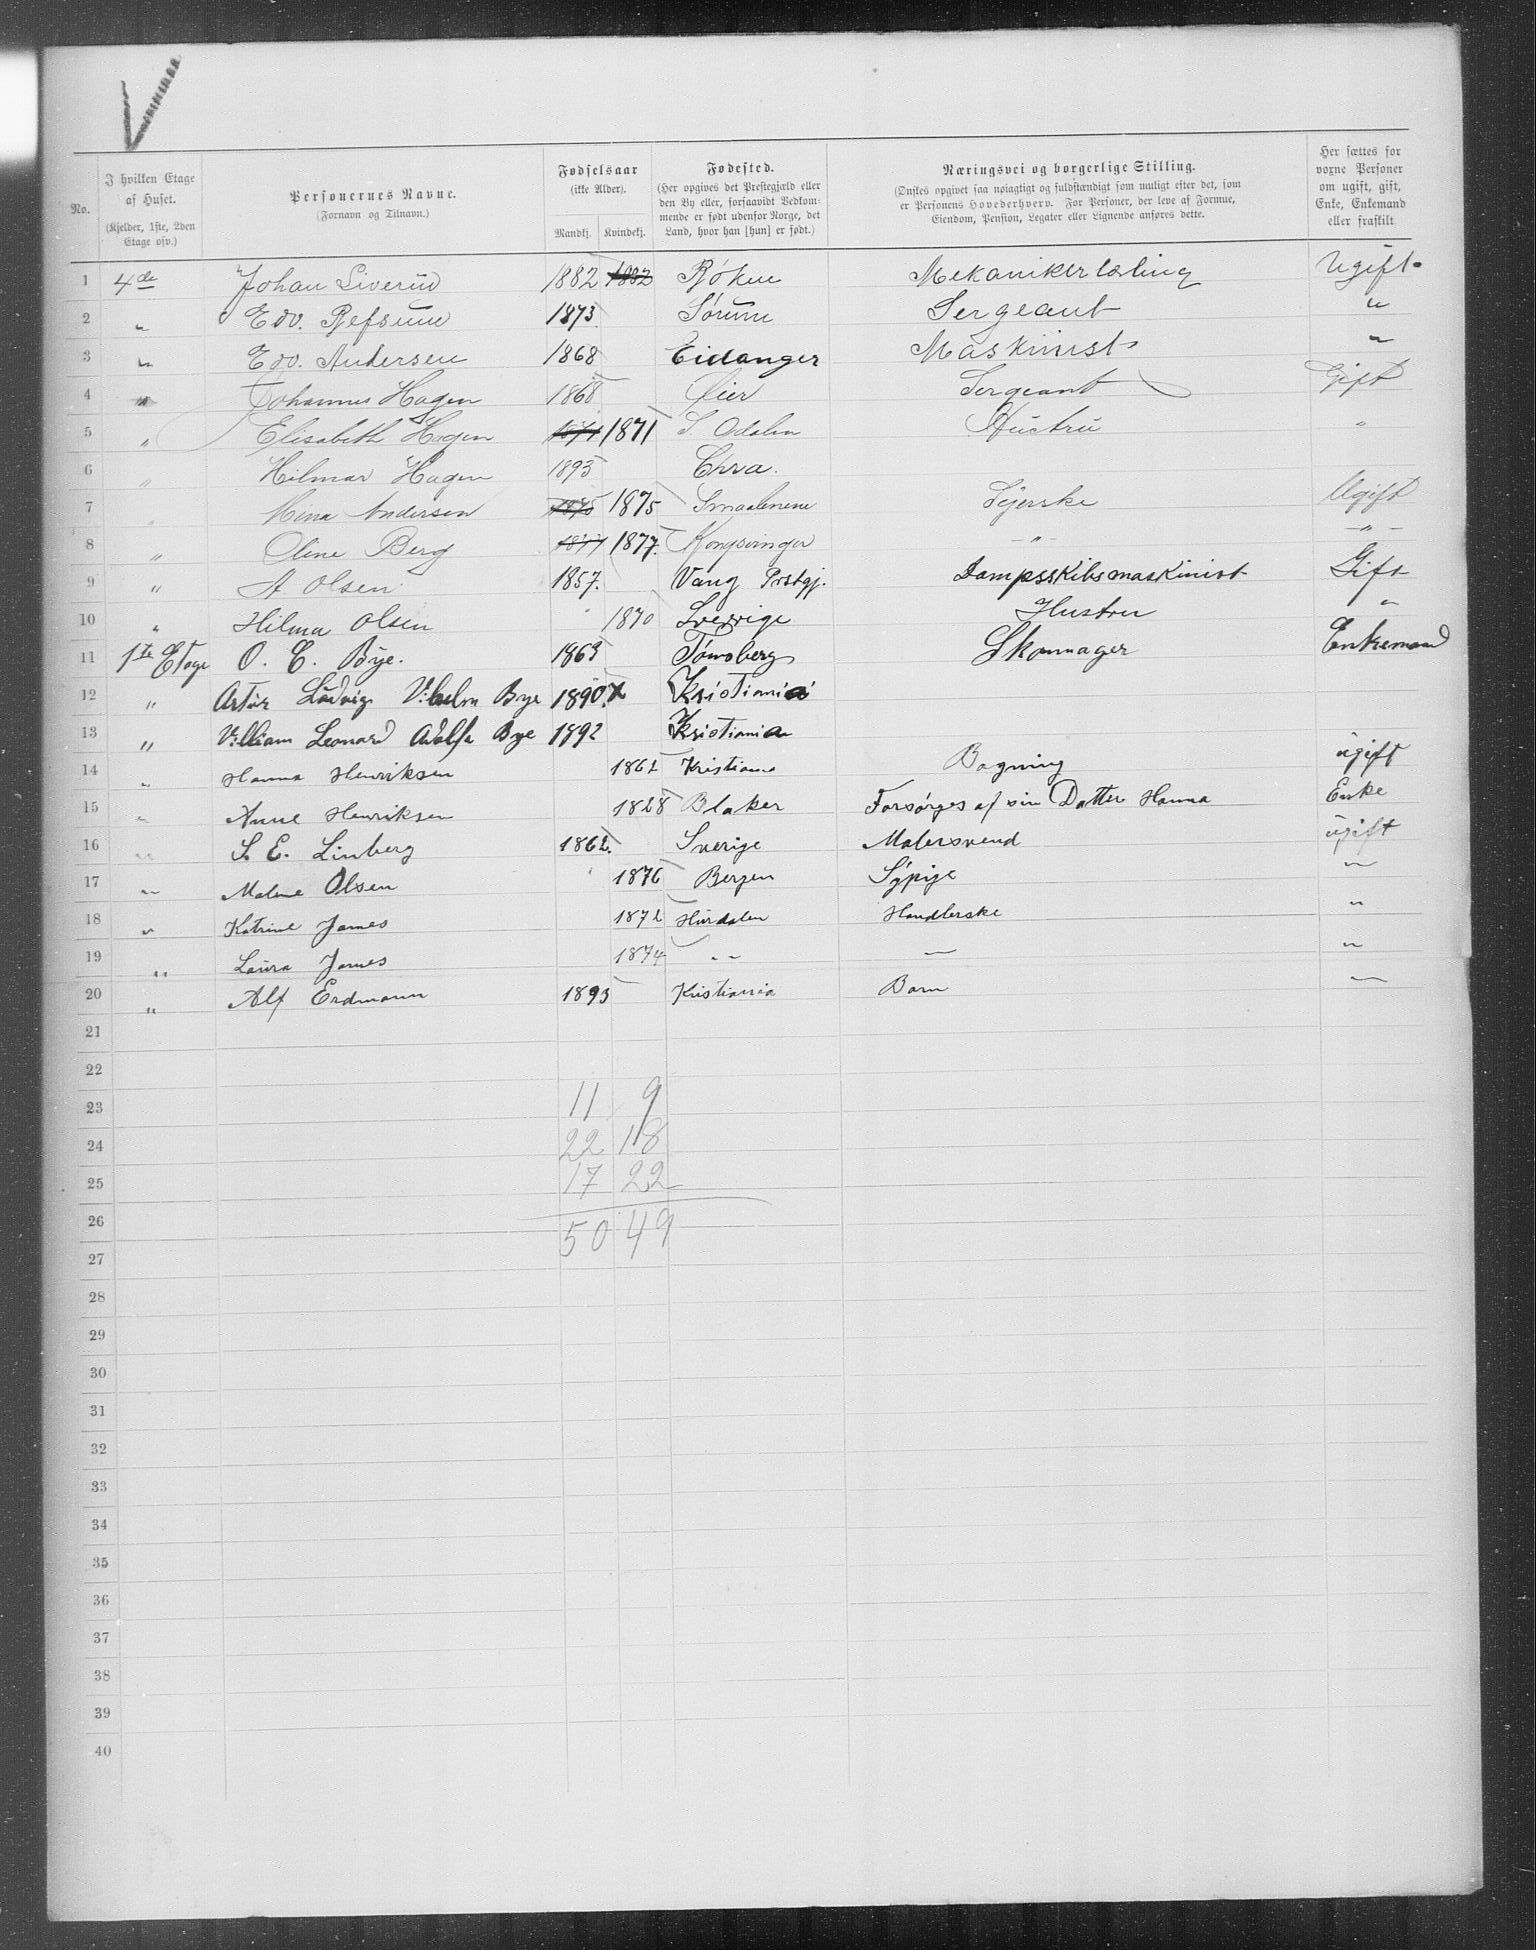 V
No.
I hvilken Etage af Huset. (Kjelder, 1ste, 2den Etage osv.)
Personernes Navne. (Fornavn og Tilnavn.)
Fødselsaar (ikke Alder). Mandkj. Kvindekj.
Fødested. (Her opgives det Prestegjæld eller den By eller, forsaavidt Vedkommende er født udenfor Norge, det Land, hvor han [hun] er født.)
Næringsvei og borgerlige Stilling. (Ønskes opgivet saa nøiagtigt og fuldstændigt som muligt efter det, som er Personens Hovederhverv. For Personer, der leve af Formue, Eiendom, Pension, Legater eller Lignende anføres dette.
Her sættes for vorne Personer om ugift, gift, Enke, Enkemand eller fraskilt
1 4de Johan Siverud 1882 1882 Røken Mekanikerlærling Ugift
2 " Edv. Refsum 1873 Sørum Sergeant "
3 " Edv. Andersen 1868 Eidanger Maskinist "
4 " Johannes Hagen 1868 Øier Sergeant Gift
5 " Elisabeth Hagen 1871 1871 S. Odalen Hustru "
6 " Hilmar Hagen 1893 Chra.
7 " Mina Andersen 1875 1875 Smaalenene Syerske Ugift
8 " Oline Berg 1877 1877 Kongsvinger - " - - " -
9 " A Olsen 1857. Vang Prstgj. Dampsskibsmaskinist Gift
10 " Hilma Olsen 1870 Sverrige Hustru "
11 1ste Etage O. C. Bye. 1863 Tønsberg Skomager Enkemand
12 " Artur Ludvig Vilhelm Bye 1890. Kristiania
13 " Villiam Leonard Adolf Bye 1892 Kristiania
14 " Hanna Henriksen 1862 Kristiania Bagning ugift
15 " Anne Henriksen 1828 Blaker Forsørges af sin Datter Hanna Enke
16 " S. E. Linberg 1862. Sverige Malersvend ugift
17 " Malene Olsen 1876 Bergen Sypige "
18 " Katrine James 1872 Hurdalen Handlerske "
19 " Laura James 1874 " — "
20 " Alf Erdmann 1893 Kristiania Barn —
21
22
23 11 9
24 22 18
25 17 22
26 50 49
27
28
29
30
31
32
33
34
35
36
37
38
39
40